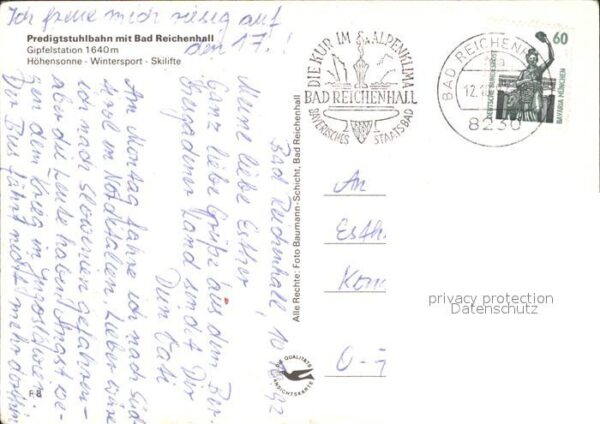 Ich freue mich riesig auf
den 17.!
Predigtstuhlbahn mit Bad Reichenhall
Gipfelstation 1640 m
Höhensonne - Wintersport - Skilifte
Bad Reichenhall, 10. 92
Meine liebe Esther!
Ganz liebe Grüße aus dem Ber-
tesgadener Land sendet Dir
Dein Vati
Am Montag fahre ich nach Süd-
tirol in Norditalien. Lieber wäre
ich nach Slowenien gefahren -
aber die Leute haben Angst we-
gen dem Krieg in Jugoslawien.
Der Bus fährt nicht mehr dorthin
F 8
Alle Rechte: Foto Baumann-Schicht, Bad Reichenhall
QUALITÄTS
ANSICHTSKARTE
DIE KUR IM ALPENKLIMA
BAD REICHENHALL
BAYERISCHES STAATSBAD
BAD REICHENHA
12.1
8230
60
DEUTSCHE BUNDESPOST
BAVARIA MÜNCHEN
An
Esth
O-
privacy protection
Datenschutz